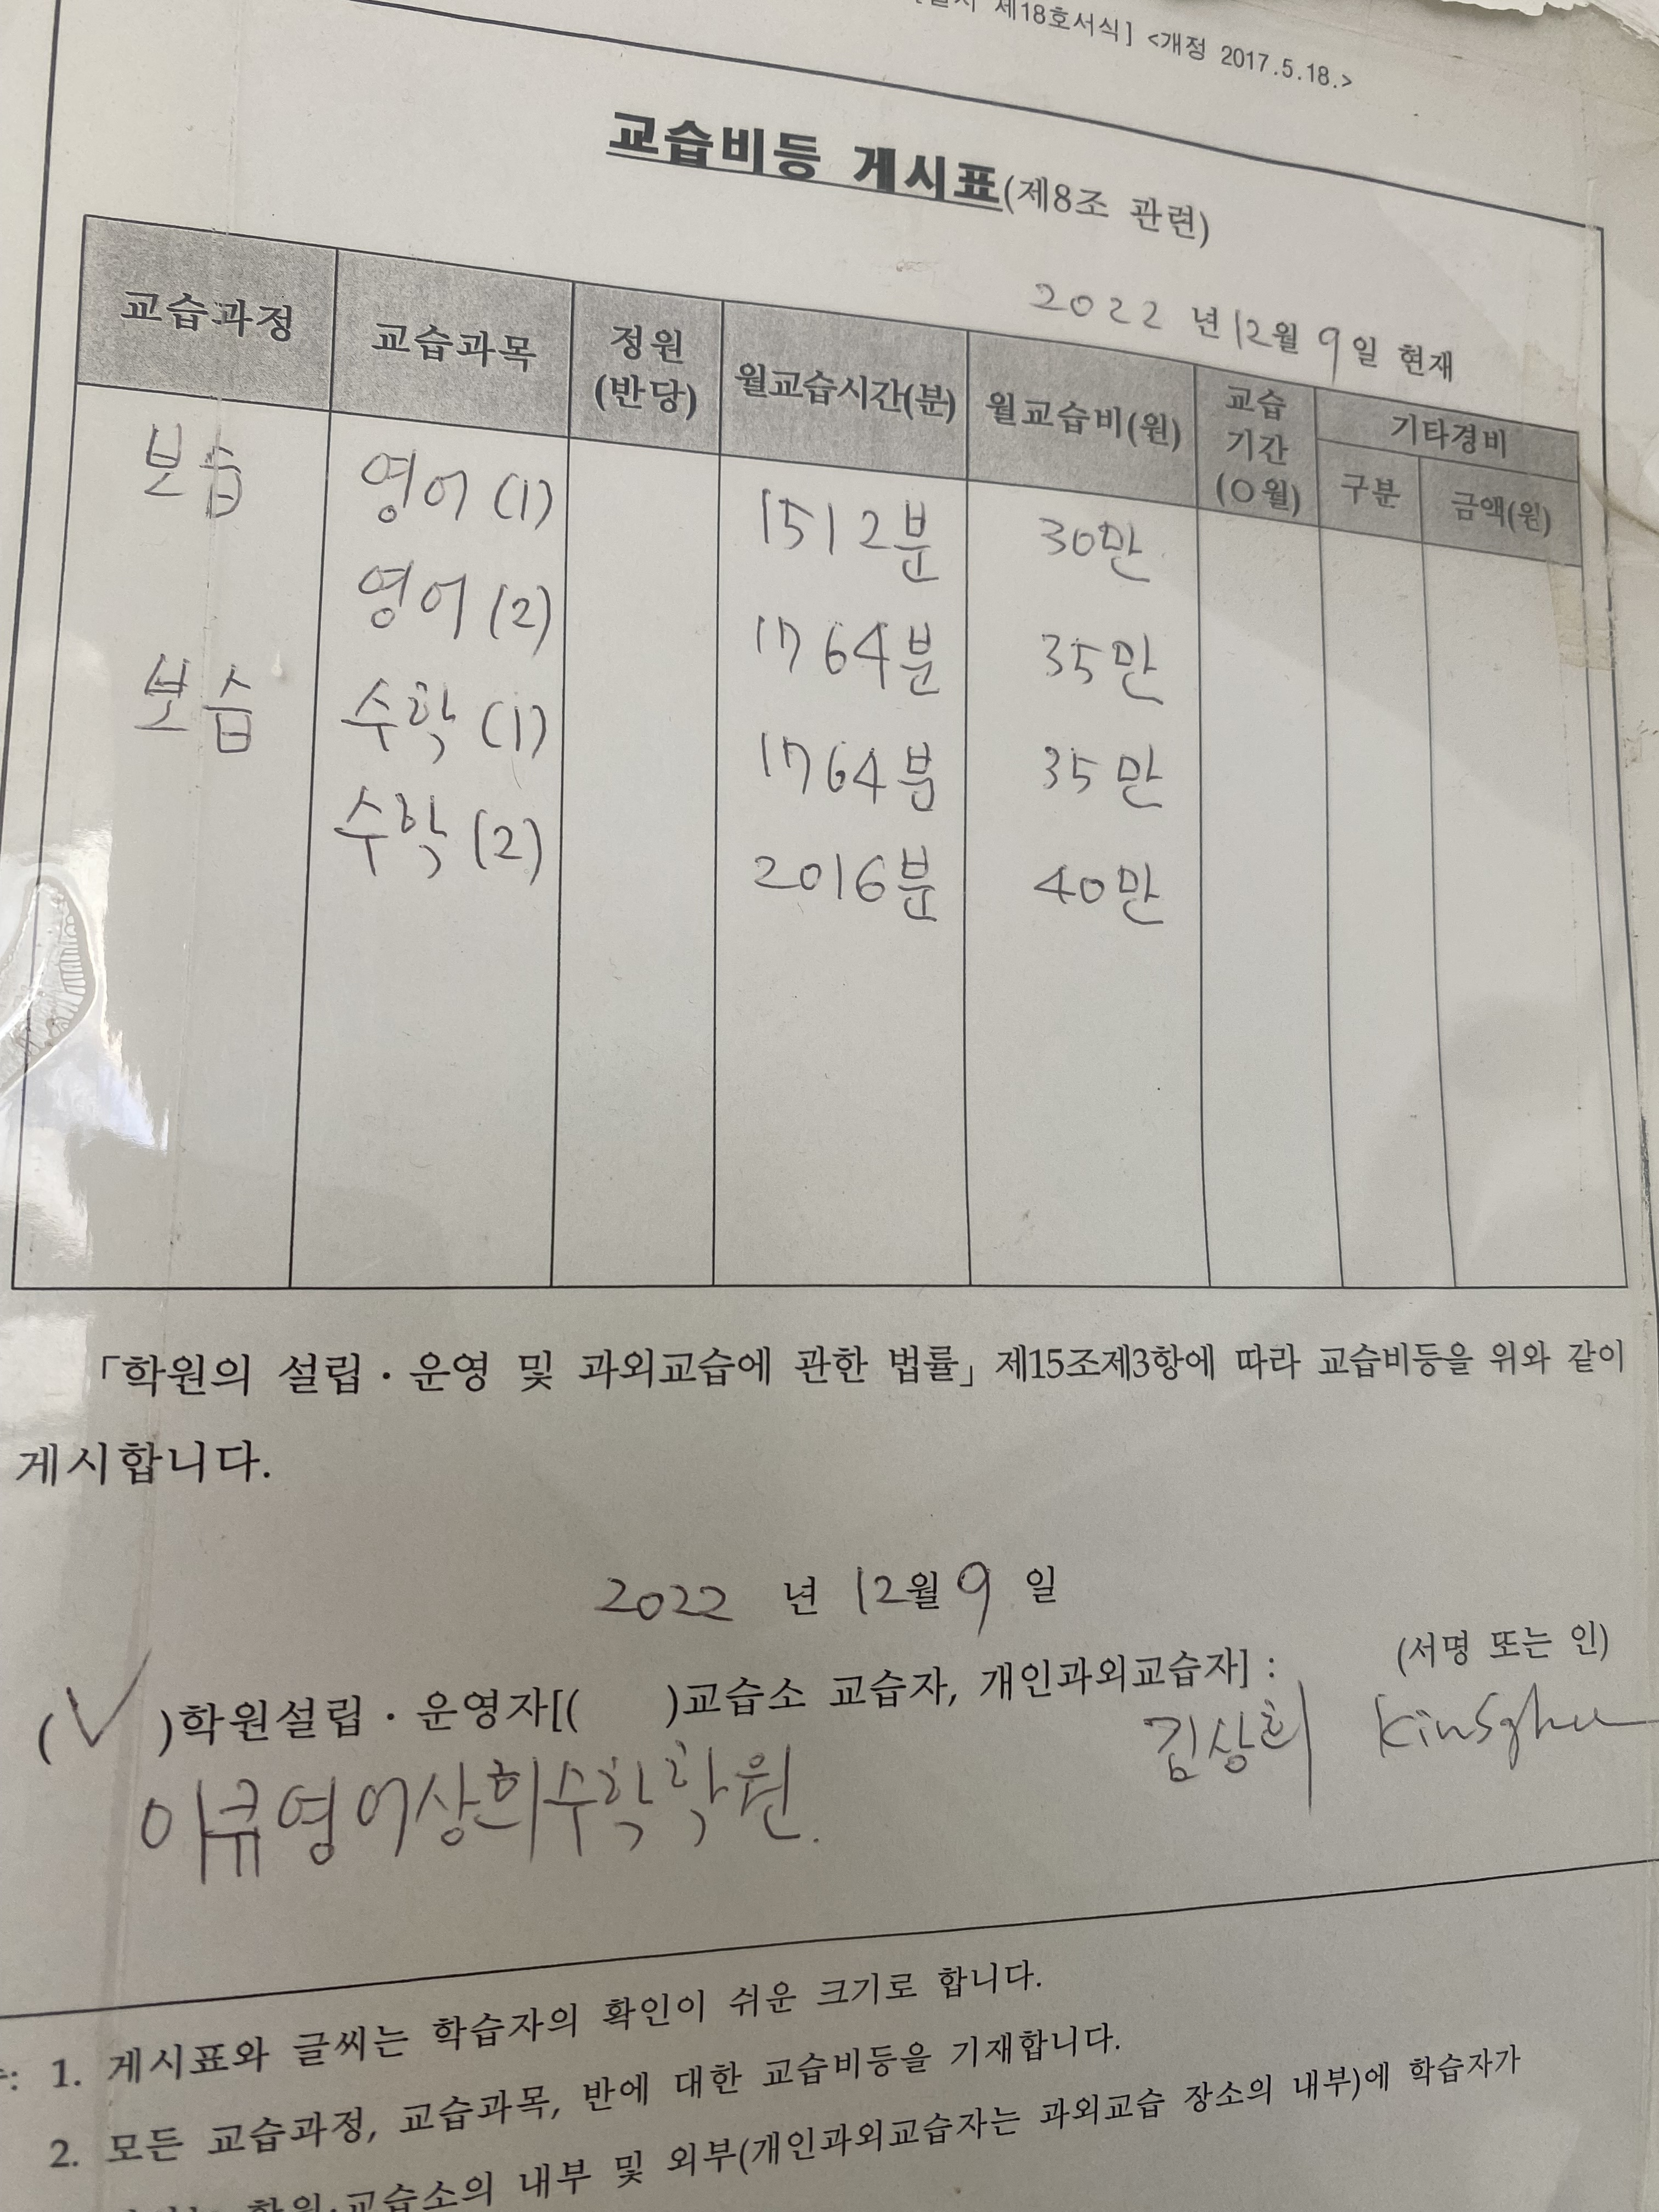 제18호서식] <개정 2017.5.18.>
교습비등 게시표(제8조 관련)
2022 년 12월 9일 현재
교습과정 교습과목 정원(반당) 월교습시간(분) 월교습비(원) 교습기간(O월) 기타경비
구분 금액(원)
보습 영어 (1) 1512분 30만
영어 (2) 1764분 35만
보습 수학 (1) 1764분 35만
수학 (2) 2016분 40만
「학원의 설립·운영 및 과외교습에 관한 법률」 제15조제3항에 따라 교습비등을 위와 같이
게시합니다.
2022 년 12월 9 일
(서명 또는 인)
(✓)학원설립·운영자[( )교습소 교습자, 개인과외교습자] :
김상희
이큐영어상희수학학원.
: 1. 게시표와 글씨는 학습자의 확인이 쉬운 크기로 합니다.
2. 모든 교습과정, 교습과목, 반에 대한 교습비등을 기재합니다.
학원·교습소의 내부 및 외부(개인과외교습자는 과외교습 장소의 내부)에 학습자가